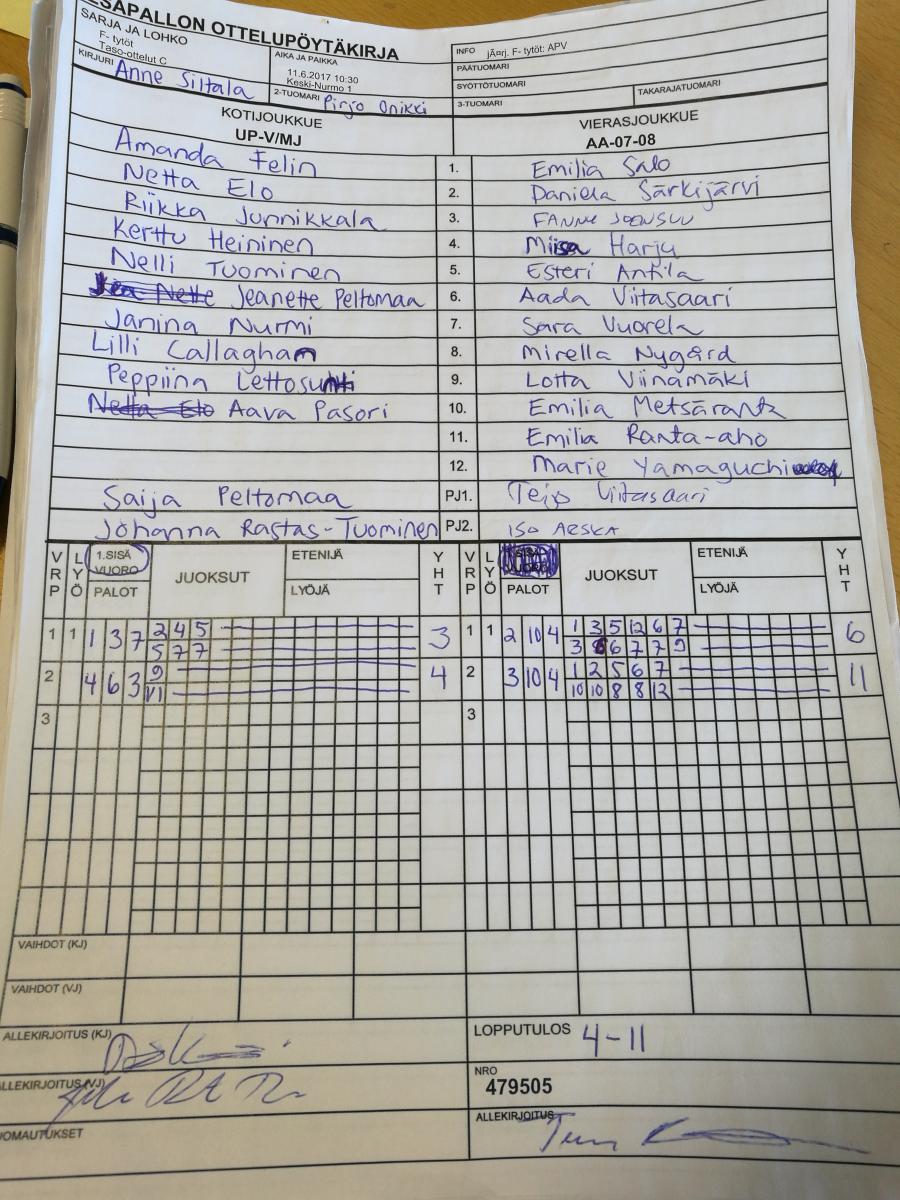 ESÄPALLON OTTELUPÖYTÄKIRJA
SARJA JA LOHKO
F- tytöt
Taso-ottelut C
AIKA JA PAIKKA
11.6.2017 10:30
Keski-Nurmo 1
INFO jÃ¤rj. F- tytöt: APV
PÄÄTUOMARI
SYÖTTÖTUOMARI
KIRJURI Anne Siltala
2-TUOMARI Pirjo Onikki
3-TUOMARI
TAKARAJATUOMARI
KOTIJOUKKUE
UP-V/MJ
VIERASJOUKKUE
AA-07-08
Amanda Felin 1. Emilia Salo
Netta Elo 2. Daniela Särkijärvi
Riikka Junnikkala 3. FANNI JOENSUU
Kerttu Heininen 4. Miisa Harju
Nelli Tuominen 5. Esteri Antila
Jeanette Peltomaa 6. Aada Viitasaari
Janina Nurmi 7. Sara Vuorela
Lilli Callaghan 8. Mirella Nygård
Peppiina 9. Lotta Viinamäki
Netta Elo Aava Pasori 10. Emilia Metsäranta
11. Emilia Ranta-aho
12. Marie Yamaguchi
Saija Peltomaa PJ1. Teijo Viitasaari
Johanna Rastas-Tuominen PJ2. ISO ARSKA
VRP LYÖ 1.SISÄ VUORO PALOT JUOKSUT ETENIJÄ LYÖJÄ YHT VRP LYÖ 1.SISÄ VUORO PALOT JUOKSUT ETENIJÄ LYÖJÄ YHT
1 1 1 3 7 2 4 5 3 1 1 2 10 4 1 3 5 12 6 7 6
5 7 7 3 6 7 7 9
2 4 6 3 9 4 2 3 10 4 1 2 5 6 7 11
11 10 10 8 8 12
3 3
VAIHDOT (KJ)
VAIHDOT (VJ)
ALLEKIRJOITUS (KJ)
LOPPUTULOS 4-11
ALLEKIRJOITUS (VJ)
NRO
479505
HUOMAUTUKSET
ALLEKIRJOITUS